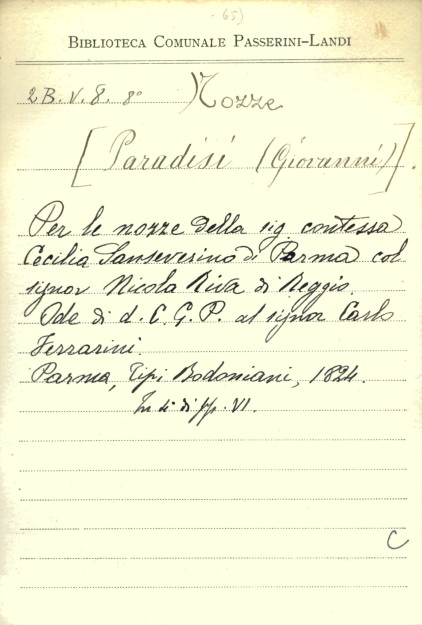 65)
BIBLIOTECA COMUNALE PASSERINI-LANDI
2B. V. 8. 8°
Nozze
[Paradisi (Giovanni)].
Per le nozze della sig contessa
Cecilia Sanseverino di Parma col
signor Nicola Riva di Reggio.
Ode di d. C. G. P. al signor Carlo
Ferrarini.
Parma, Tipi Bodoniani, 1824.
In 4° di pp. VI.
C